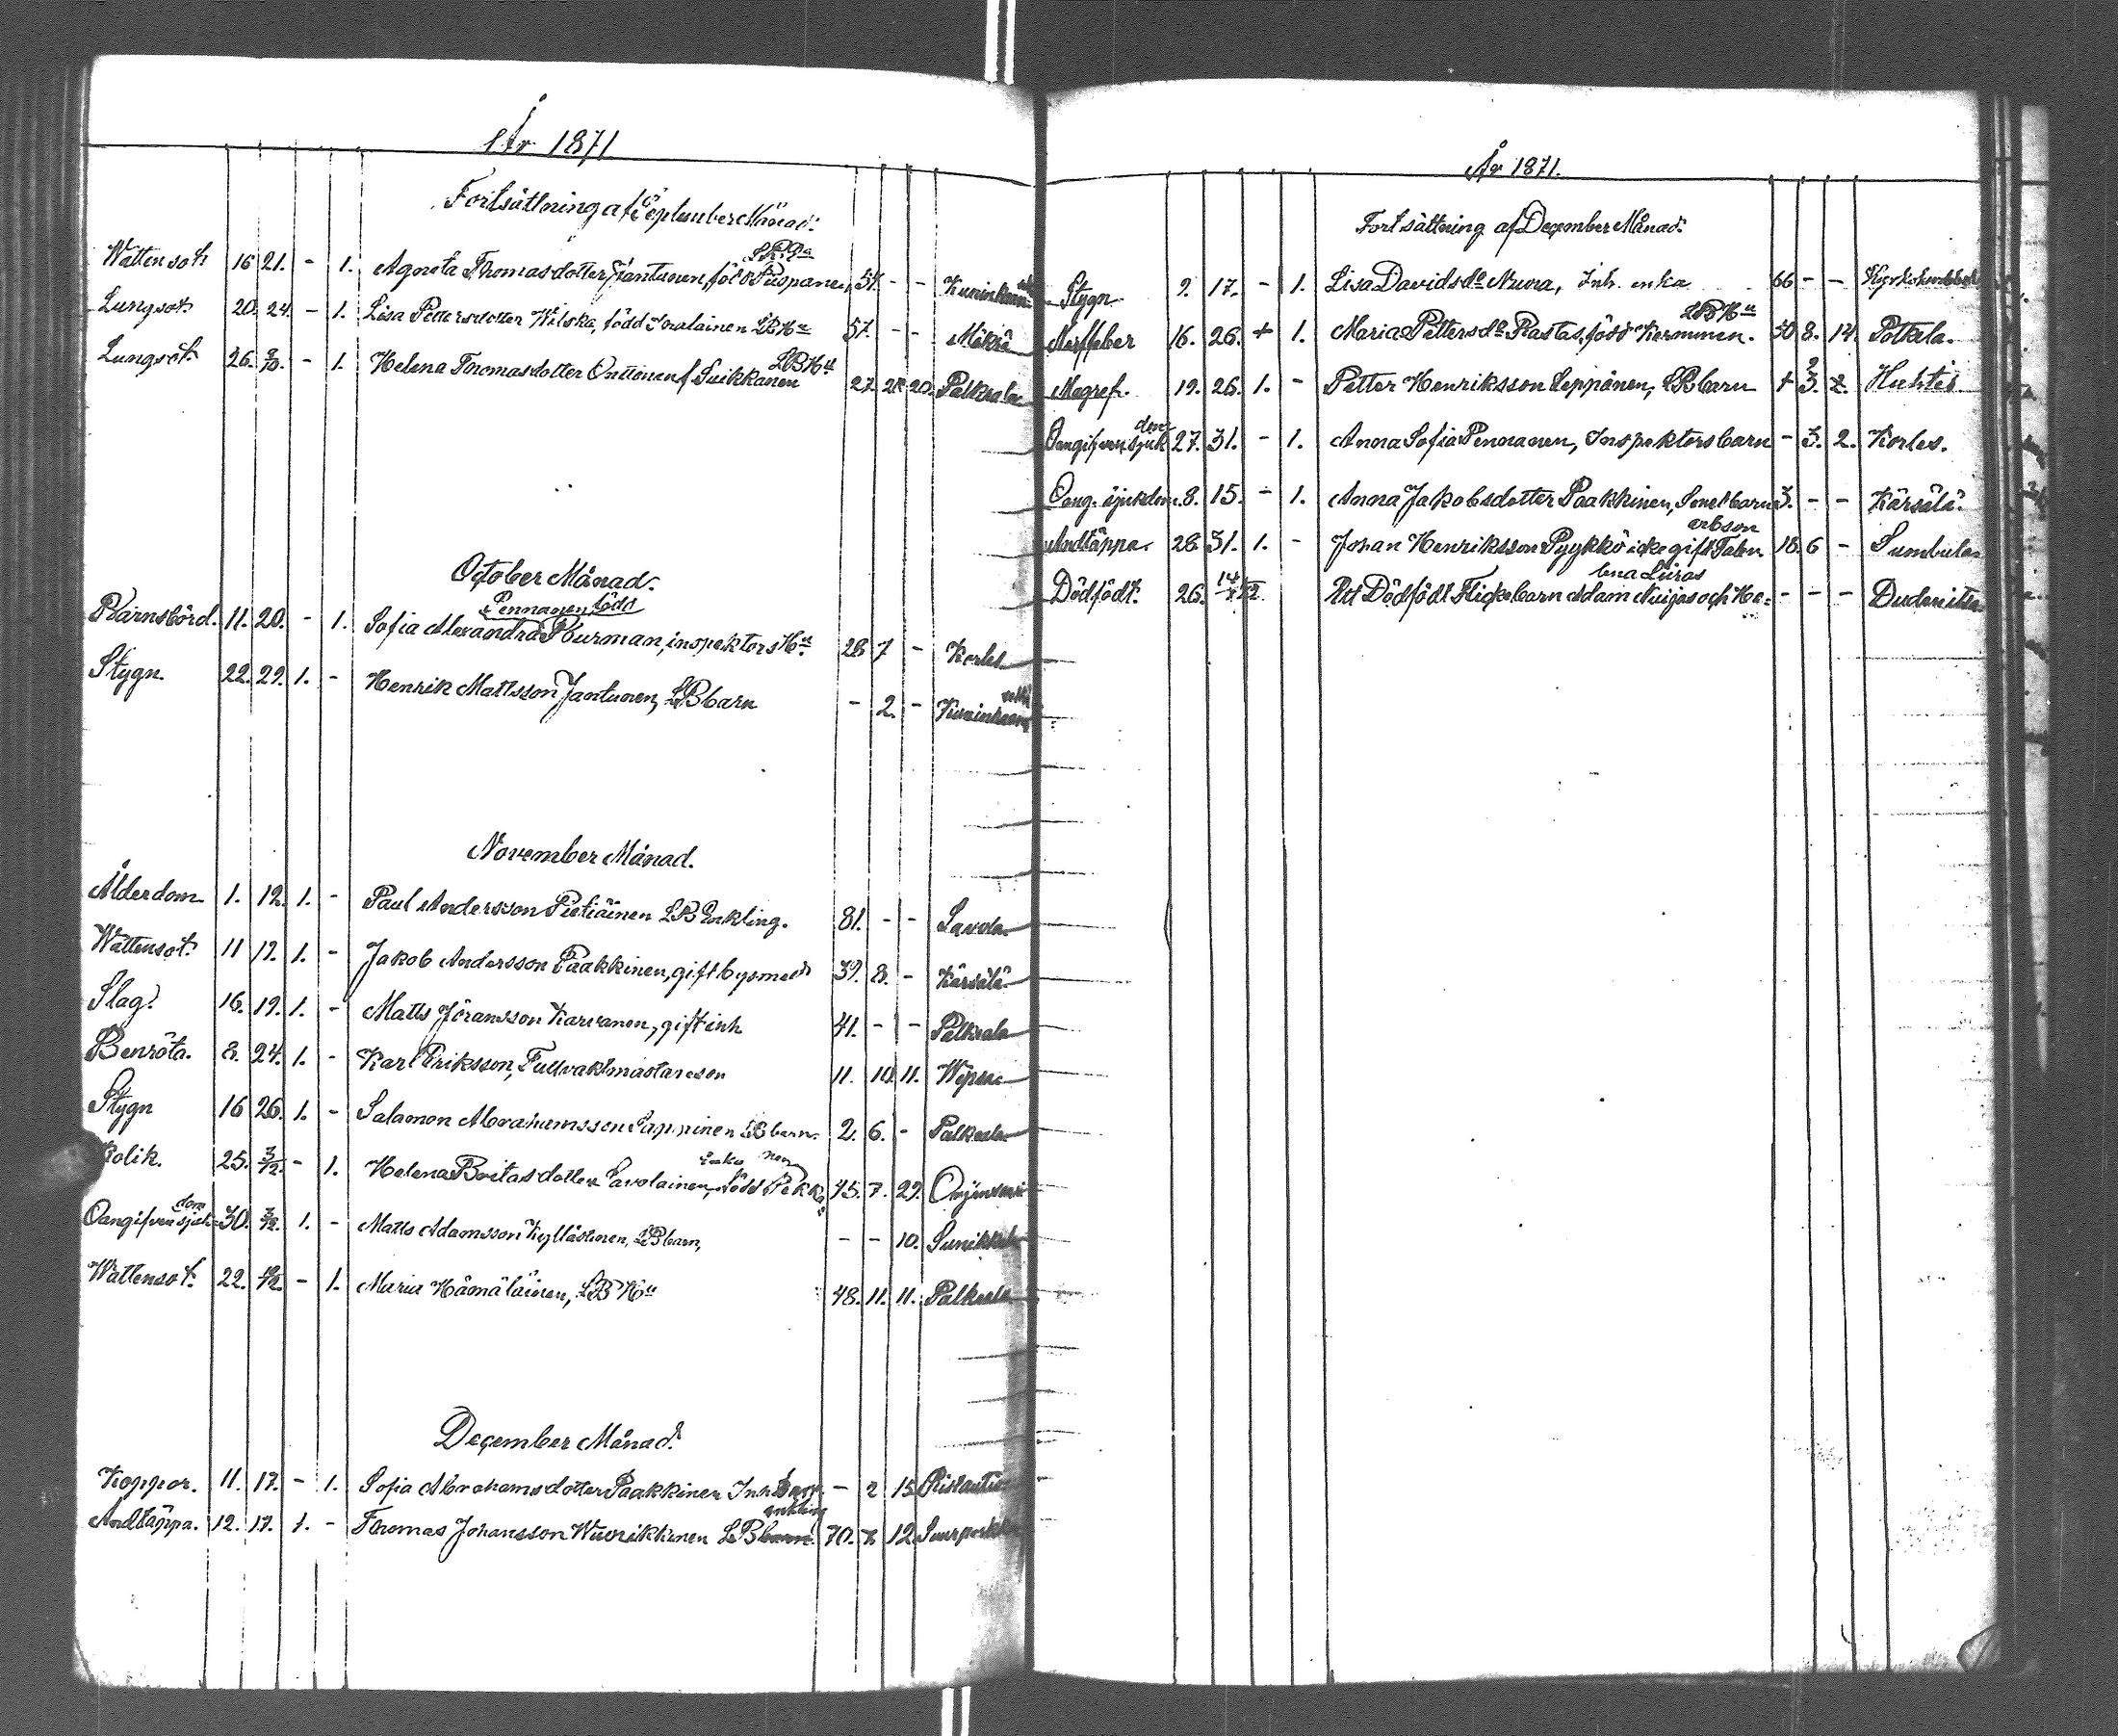 År 1871
Fortsättning af September Månad.
LBHa
Wattensot 16 21. - 1. Agneta Thomasdotter Jantunen, född Puspanen, 54. - - Kuninkaan
Lungsot 20. 24. - 1. Lisa Pettersdotter Wilska, född Ikalainen LBHu 57. - - Mäkrä
LBHu
Lungsot 26. 8/10. - 1. Helena Thomasdotter Onttonen f. Suikkanen 27. 20. Palkeala
October Månad.
Pennanen född
Barnsbörd. 11. 20. - 1. Sofia Alexandra Burman, inspektors Hu. 28 7 - Korles
Stygn. 22. 29. 1. - Henrik Mattsson Jantunen, LBbarn - 2. - Kuninkaan
November Månad.
Ålderdom 1. 12. 1. - Paul Andersson Pietiäinen LB Enkling. 81. - - Savola
Wattensot. 11 12. 1. - Jakob Andersson Paakkinen, gift bysmed 39. 8. - Kärsälä
Slag. 16. 19. 1. - Matts Jöransson Karvanen, gift inh 41. - - Palkeala
Benröta. 8. 24. 1. - Karl Eriksson, Tullvaktmästareson 11. 10. 11. Wepsa
Stygn 16 26. 1. - Salamon Abrahamsson Lappinen LBbarn. 2. 6. - Palkeala
Enka nen
Kolik. 25. 3/12. - 1. Helena Beatasdotter Savolainen, född Pekka= 45. 7. 29.
dom
Oangifven sjuk= 30. 3/12. 1. - Matts Adamsson Kylläinen, LBbarn, - - 10. Sunikkala
Wattensot. 22. 10/12. - 1. Maria Hämäläinen, LB Hu 48. 11. 11. Palkeala
December Månad.
Koppor. 11. 17. - 1. Sofia Abrahamsdotter Paakkinen Inh barn - 2 15
enkling
Andtäppa. 12. 17. 1. - Thomas Johansson Wuorikkinen LB barn. 70. 7. 12. Suurporkku
År 1871.
Fortsättning af December Månad.
Stygn 9. 17. - 1. Lisa Davidsdr Mura, Inh. enka 66 - -
LBHu
Nerffeber 16. 26. + 1. Maria Pettersdr Rastas, född Kerminen. 50 8. 14. Potkela.
Magref. 19. 26. 1. - Petter Henriksson Leppänen, LBbarn + 3. 2. Huhtis
dom
Oangifven sjuk 27. 31. - 1. Anna Sofia Pennanen, Inspektors barn - 3. 2. Korles.
Oang. sjukdom. 8. 15. - 1. Anna Jakobsdotter Paakkinen, Smed barn 3. - - Kärsälä.
arbson
Andtäppa. 28. 31. 1. - Johan Henriksson Pyykkö icke gift Tabr. 18. 6 - Sumbula
lena Liiras
Dödfödt. 26. 14/12 Ett Dödfödt Flickebarn Adam Nuijas och He= - - -